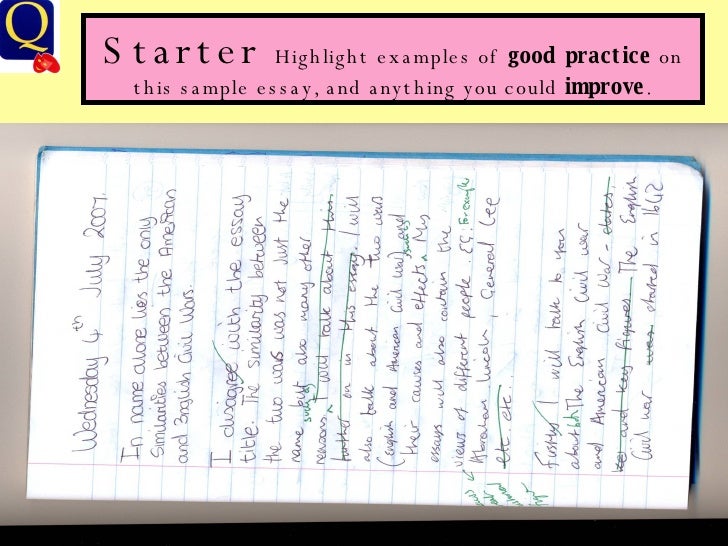 Q
Starter Highlight examples of good practice on
this sample essay, and anything you could improve.
Wednesday 4th July 2007.
In name alone lies the only
similarities between the American
and English Civil Wars.
I disagree with the essay
title. The similarity between
the two wars was not just the
name but also many other
reasons. I will talk about this
further on in this essay. I will
also talk about the two wars
(English and American Civil War)
their causes and effects. My
essays will also contain the
views of different people. EG: for example
Abraham Lincoln, General Lee
etc etc.
Firstly I will talk to you
about The English Civil war
and American Civil War - dates
and key figures. The English
Civil war was started in 1642